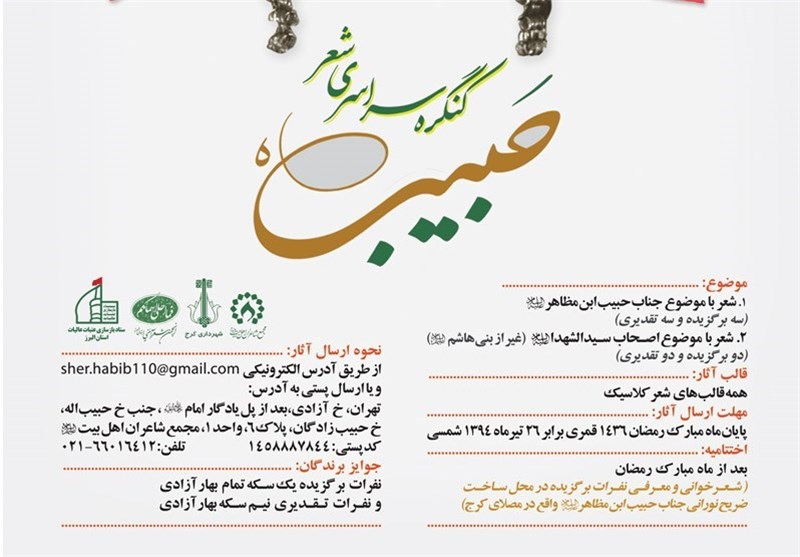 کنگره سراسری شعر
حبیب
موضوع:
۱. شعر با موضوع جناب حبیب ابن مظاهر
(سه برگزیده و سه تقدیری)
۲. شعر با موضوع اصحاب سیدالشهدا (غیر از بنی هاشم)
(دو برگزیده و دو تقدیری)
قالب آثار:
همه قالب‌های شعر کلاسیک
مهلت ارسال آثار:
پایان ماه مبارک رمضان ۱۴۳۶ قمری برابر ۲۶ تیرماه ۱۳۹۴ شمسی
اختتامیه:
بعد از ماه مبارک رمضان
(شعرخوانی و معرفی نفرات برگزیده در محل ساخت
ضریح نورانی جناب حبیب ابن مظاهر واقع در مصلای کرج)
ستاد بازسازی عتبات عالیات
استان البرز
شهرداری کرج
نحوه ارسال آثار:
از طریق آدرس الکترونیکی sher.habib110@gmail.com
و یا ارسال پستی به آدرس:
تهران، خ آزادی، بعد از پل یادگار امام، جنب خ حبیب اله،
خ حبیب زادگان، پلاک ۶، واحد ۱، مجمع شاعران اهل بیت
کدپستی: ۱۴۵۸۸۸۷۸۴۴ تلفن: ۶۶۰۱۶۴۱۲-۰۲۱
جوایز برندگان:
نفرات برگزیده یک سکه تمام بهار آزادی
و نفرات تقدیری نیم سکه بهار آزادی